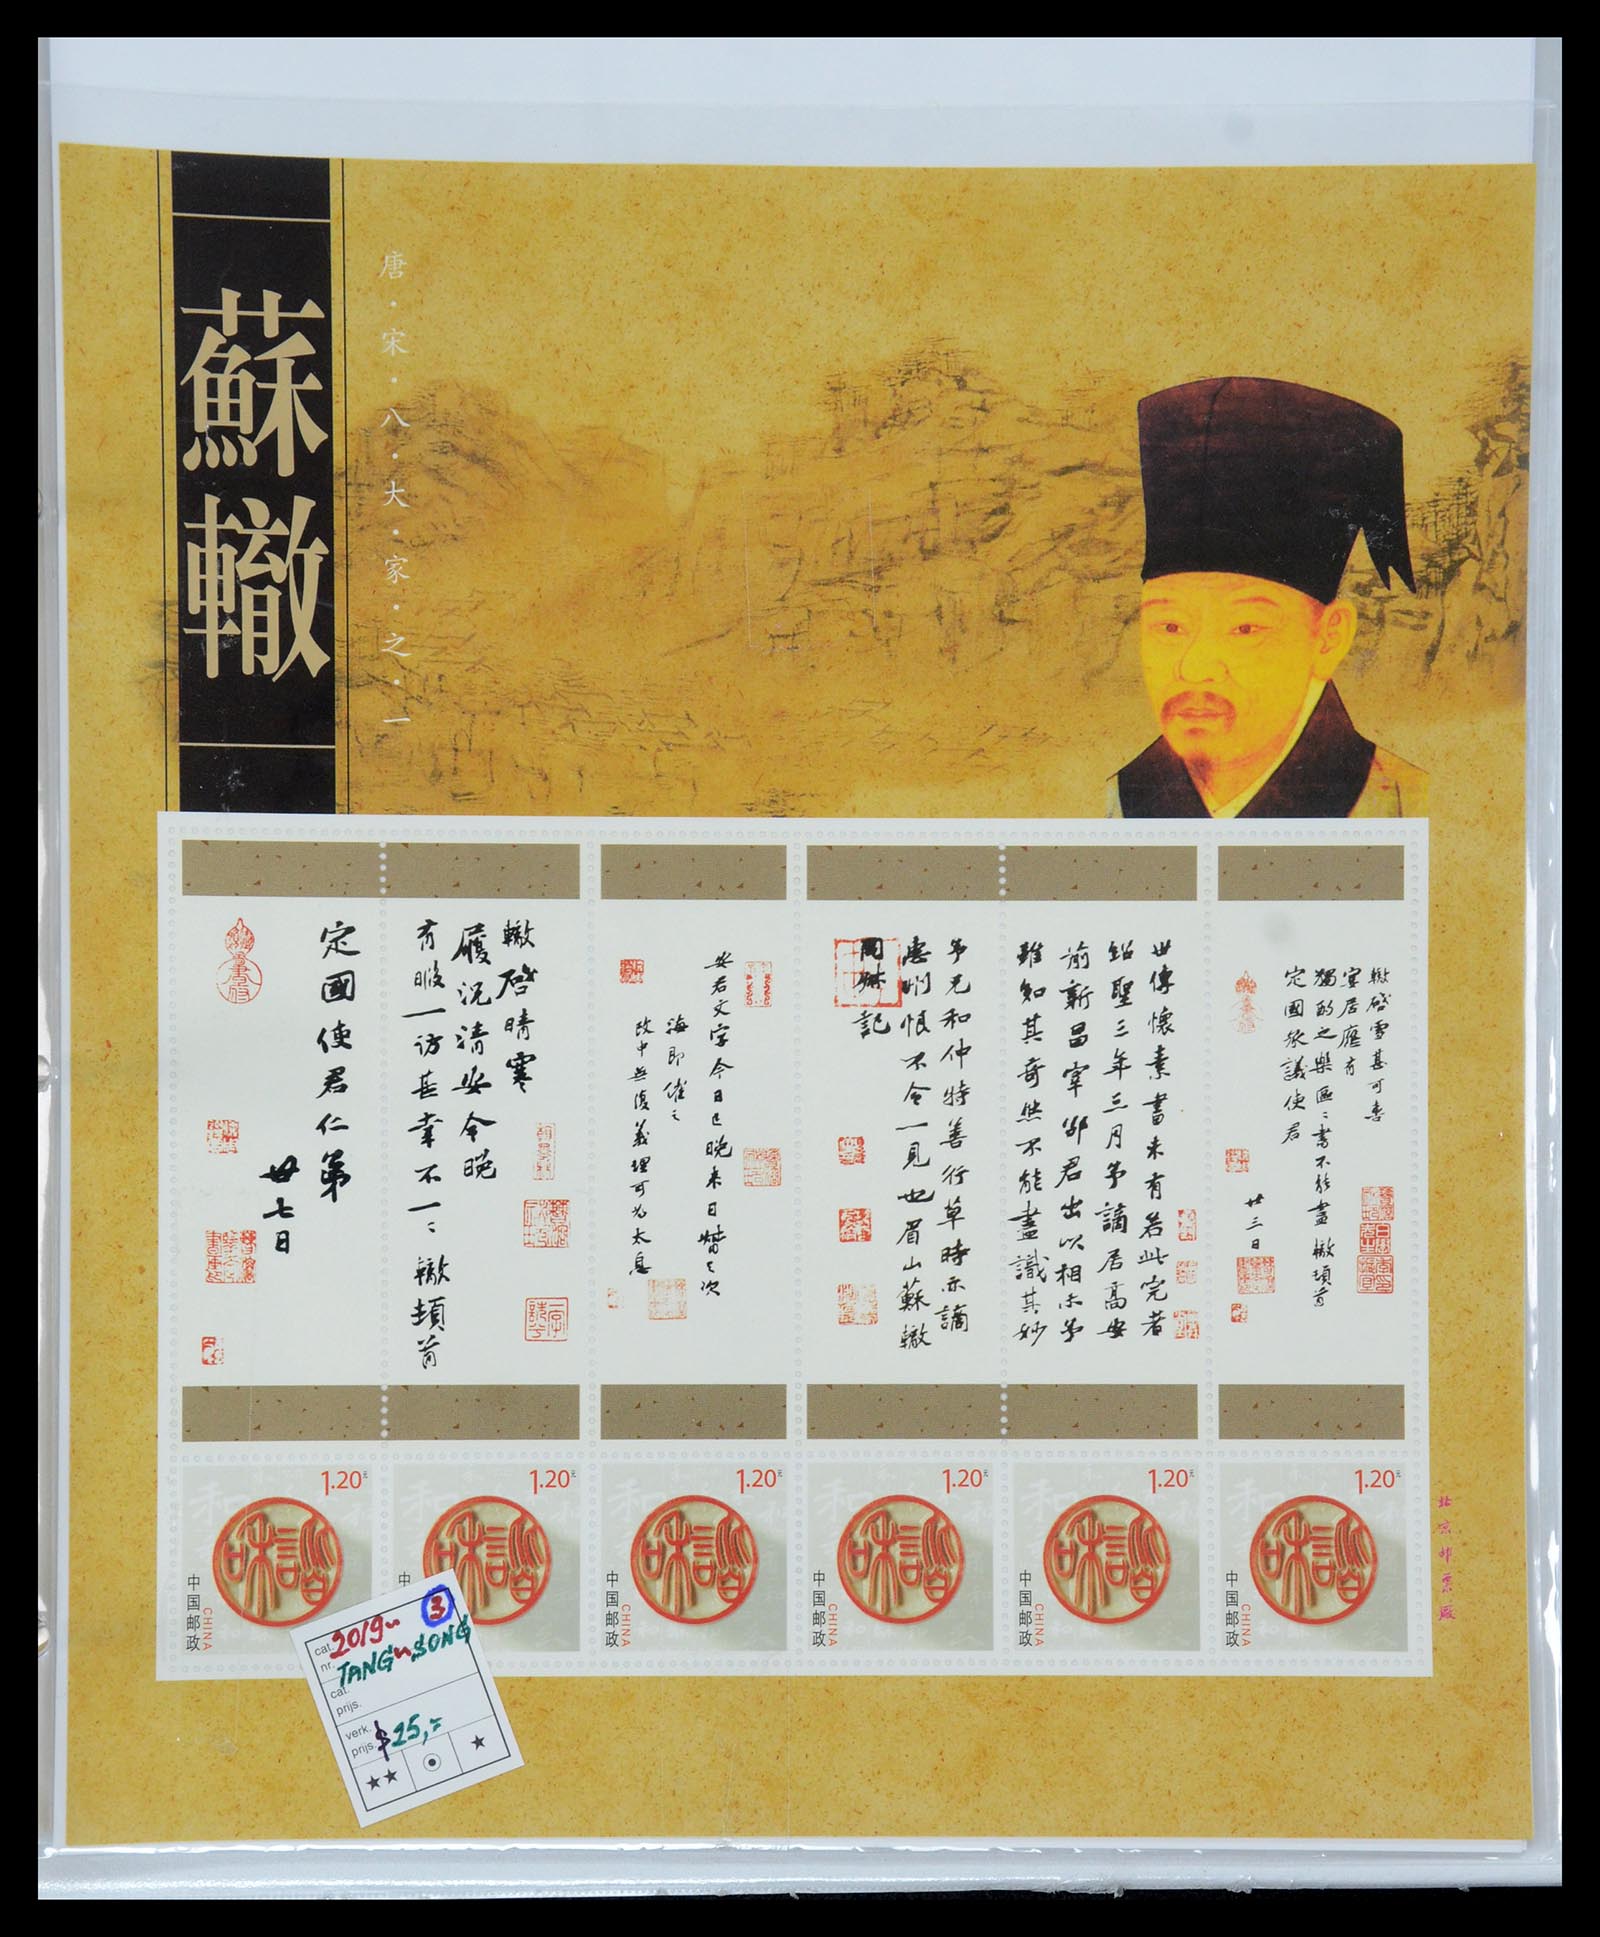 蘇轍
唐·宋·八·大·家·之·一
轍啓雪甚可喜
宴居應有
獨酌之樂區〻書不能盡轍頓首
定國承議使君
廿三日
世傳懷素書未有若此完者
紹聖三年三月予謫居高安
前新昌宰邵君出以相示予
雖知其奇然不能盡識其妙
予兄和仲特善行草時亦謫
惠州恨不令一見也眉山蘇轍
同叔記
安君文字今日已晚來日
海即催之
政中無復義理可為太息
轍啓晴寒
履況清安今晚
有暇一訪甚幸不一〻轍頓首
定國使君仁弟
廿七日
1.20元
中国邮政
CHINA
1.20元
中
1.20元
中国邮政
CHINA
1.20元
中国邮政
CHINA
1.20元
中国邮政
CHINA
1.20元
中国邮政
CHINA
北京邮票厂
3
cat. nr. 2019~
TANG~SONG
cat. prijs.
verk. prijs. $25,=